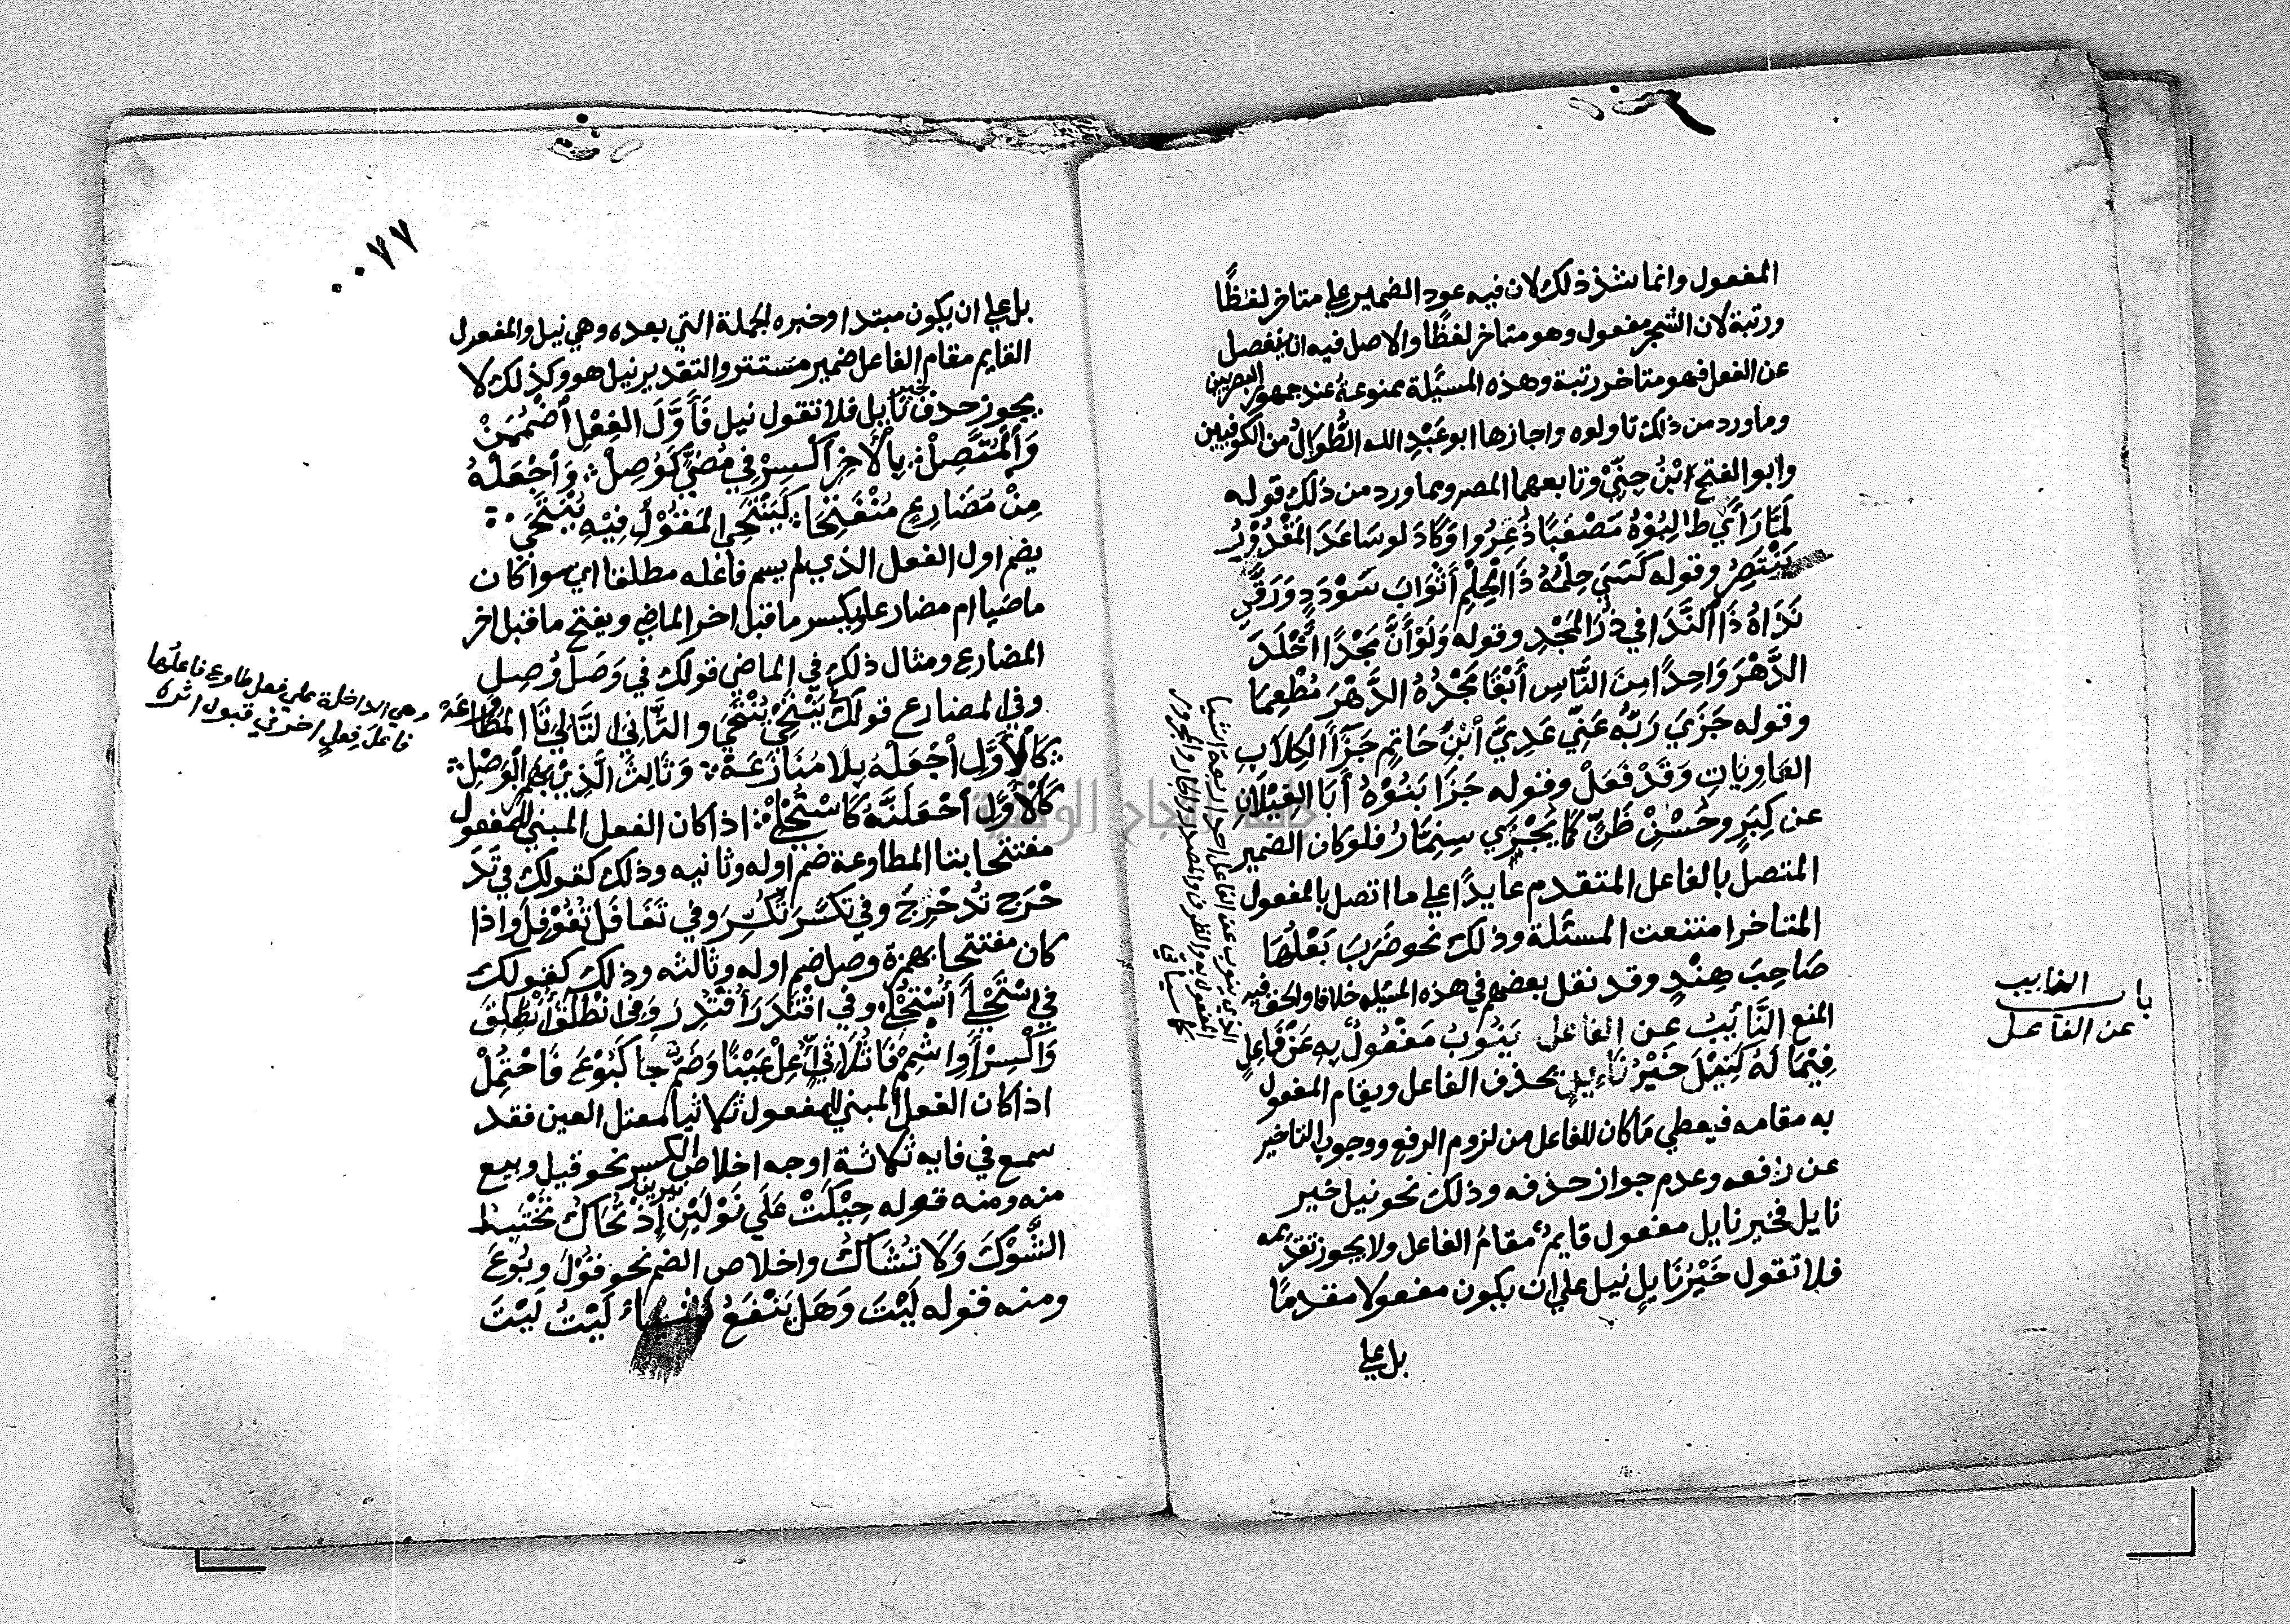 المفعول وانما شذ ذلك لان فيه عود الضمير علي متاخر لفظًا
ورتبة لان الشجر مفعول وهو متاخر لفظًا والاصل فيه ان ينفصل
عن الفعل فهو متاخر رتبة وهذه المسئلة ممنوعة عند جمهور البصريين
وما ورد من ذلك تاولوه واجازها ابو عَبْدِ الله الطُّوَالُ من الكوفيين
وابو الفتح ابْنُ جِنِّيْ وتابعهما المصر ومما ورد من ذلك قوله
لَمَّا رَأَي طالِبُوْهُ مَصْعَبًا ذُعِرُوا وَكَادَ لو سَاعَدَ المَقْدُوْرُ
يَنْتَصِرُ وقوله كَسَي حِلْمُهُ ذَا الْحِلْمِ أَثْوَابَ سَوْدَدٍ وَرَقَّي
نَدَاهُ ذَا النَّدَا في ذُرَا الْمَجْدِ وقوله وَلَوْ أَنَّ مَجْدًا أَخْلَدَ
الدَّهْرَ وَاحِدًا مِنَ النَّاسِ أَبْقَا مَجْدُهُ الدَّهْرَ مُطْعِمَا
وقوله جَزَي رَبُّهُ عَنِّي عَدِيَّ ابْنَ حَاتِمٍ جَزَآءَ الكِلَابِ
العَاوِيَاتِ وَقَدْ فَعَلْ وقوله جَزَا بَنُوْهُ أَبَا الغِيْلَانِ
عن كِبَرٍ وحُسْنِ ظَنٍّ كَمَا يُجْزَي سِنِمَّارُ فلو كان الضمير
المتصل بالفاعل المتقدم عايدًا علي ما اتصل بالمفعول
المتاخر امتنعت المسئلة وذلك نحو ضَرَبَ بَعْلُهَا
صَاحِبَ هِنْدٍ وقد نقل بعضهم في هذه المسئله خلافا والحق فيه
المنع النَّايِبُ عن الفاعل يَنُوْبُ مَفْعُوْلٌ بِهِ عَنْ فَاعِلِ
فِيْمَا لَهُ كَنِيْلَ خَيْرُ نَاءِيلِ يحذف الفاعل ويقام المفعول
به مقامه فيعطي مَا كان للفاعل من لزوم الرفع ووجوب التاخير
عن رافعه وعدم جواز حذفه وذلك نحو نيل خير
نايل فخير نايل مفعول قايم مقامُ الفاعل ولا يجوز تقديمه
فلا تقول خَيْرُ نَايِلٍ نيل علي ان يكون مفعولا مقدمًا
بل علي
باب النايب
عن الفاعل
الذي ينوب عن الفاعل احد اربعة اشيا
المفعول به والظرف والمصدر والجار والمجرور
كما سياتي
٠٠٧٧
بل علي ان يكون مبتدا وخبره الجملة التي بعده وهي نيل والمفعول
القايم مقام الفاعل ضمير مستتر والتقدير نيل هو وكذلك لا
يجوز حذف خير نايل فلا تقول نيل فَأَوَّلَ الفِعْلِ أضْمُمَنْ
وَالْمُتَّصِلْ بِالْأَخِرِ أكْسِرْ فِي مُضِيٍّ كَوُصِلْ وَاجْعَلْهُ
مِنْ مُضَارِعٍ مُنْفَتِحَا كَيَنْتَحِي المَقُوْلُ فِيْهِ يُنْتَحَي
يضم اول الفعل الذي لم يسم فاعله مطلقا اي سوا كان
ماضيا ام مضارعا ويكسر ما قبل اخر الماضي ويفتح ما قبل اخر
المضارع ومثال ذلك في الماضي قولك في وَصَلَ وُصِل
وفي المضارع قولك يَنْتَحِي يُنْتَحَي والثَّانِيَ التَّالِيَ تَا المُطَاوَعَهْ
كَالأَوَّلِ أجْعَلْهُ بِلَا مُنَازَعَهْ وَثَالِثَ الَّذِيْ بِهَمْزِ الوَصْلِ
كَالأَوَّلِ أجْعَلَنَّهُ كَاسْتُحْلِيْ اذا كان الفعل المبني للمفعول
مفتتحا بتا المطاوعة ضم اوله وثانيه وذلك كقولك في تَدَ
حْرَجَ تُدُحْرِجَ وفي تَكَسَّرَ تُكُسِّرَ وفي تَغَافَلَ تُغُوْفِلَ واذا
كان مفتتحا بهمزة وصل ضم اوله وثالثه وذلك كقولك
في اسْتَحْلَي أُسْتُحْلِيَ وفي اقْتَدَرَ أُقْتُدِرَ وفي انْطَلَقَ أُنْطُلِقَ
وَاكْسِرْ أَوِ اشْمِمْ فَا ثُلَاثِيٍّ أُعِلْ عَيْنًا وَضَمٌّ جَا كَبُوْعَ فَاحْتُمِلْ
اذا كان الفعل المبني للمفعول ثلاثيا معتل العين فقد
سمع في فايه ثلاثة اوجه اخلاص الكسر نحو قيل وبيع
منه ومنه قوله حِيْكَتْ عَلَي نَوْلَيْنِ نيرين إِذْ تُحَاكُ تَخْتَبِطُ
الشَّوْكَ وَلَا تُشَاكُ واخلاص الضم نحو قُوْلَ وبُوْعَ
ومنه قوله لَيْتَ وَهَل يَنْفَعُ شَيْـًٔا لَيْتُ لَيْتَ
وهي الداخلة علي فعل طاوع فاعلها
فاعلَ فِعلٍ اخر في قبول اثره
جامعة النجاح الوطنية